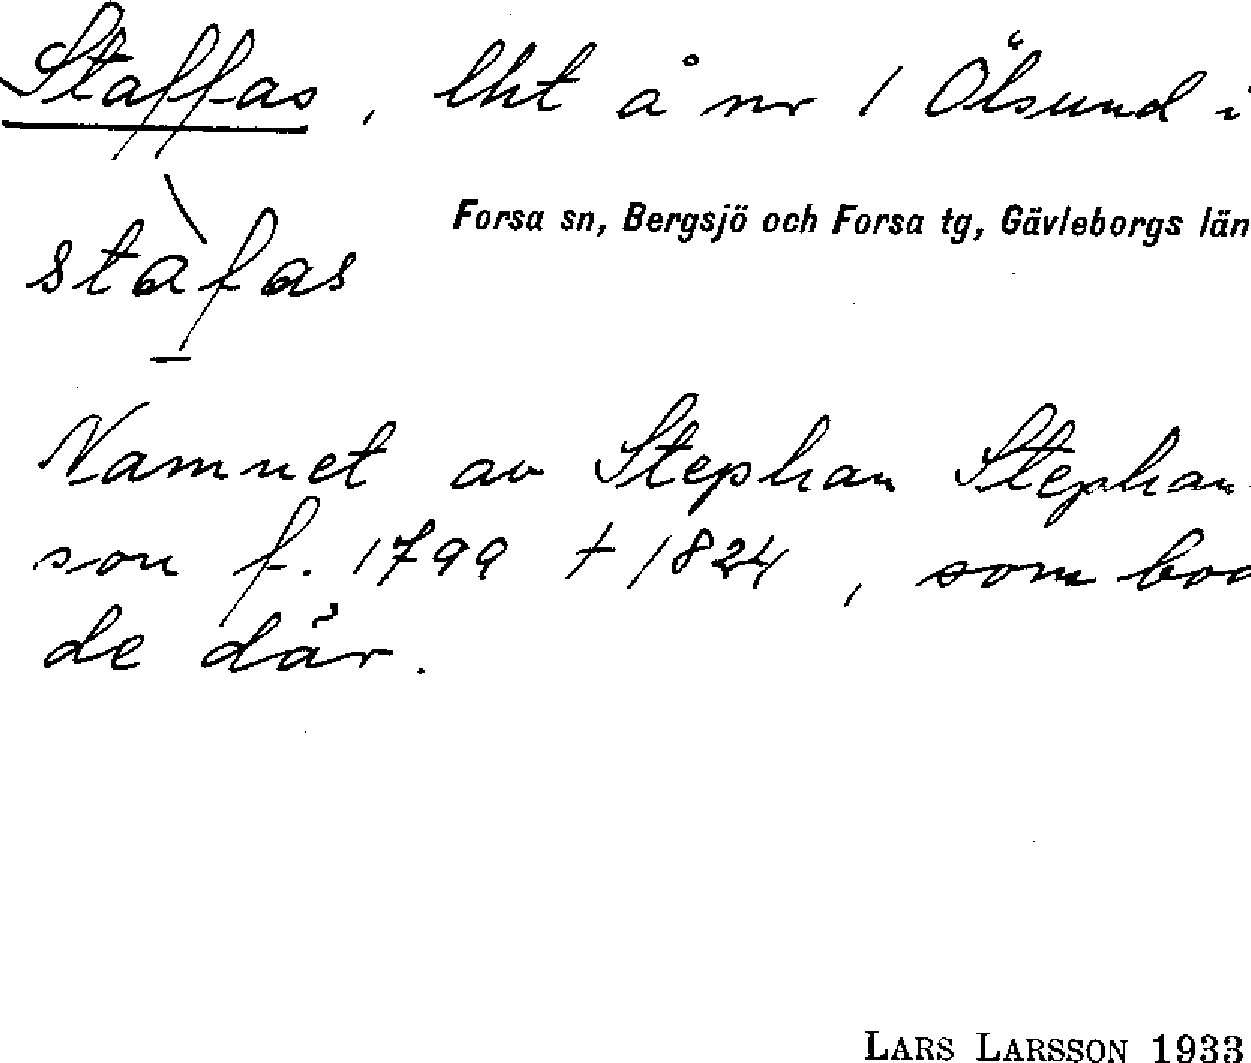 Staffas, lht å nr 1 Ölsund i
Forsa sn, Bergsjö och Forsa tg, Gävleborgs län
stàfas
Namnet av Stephan Stephan-
son f. 1799 † 1824, som bod
de där.
LARS LARSSON 1933